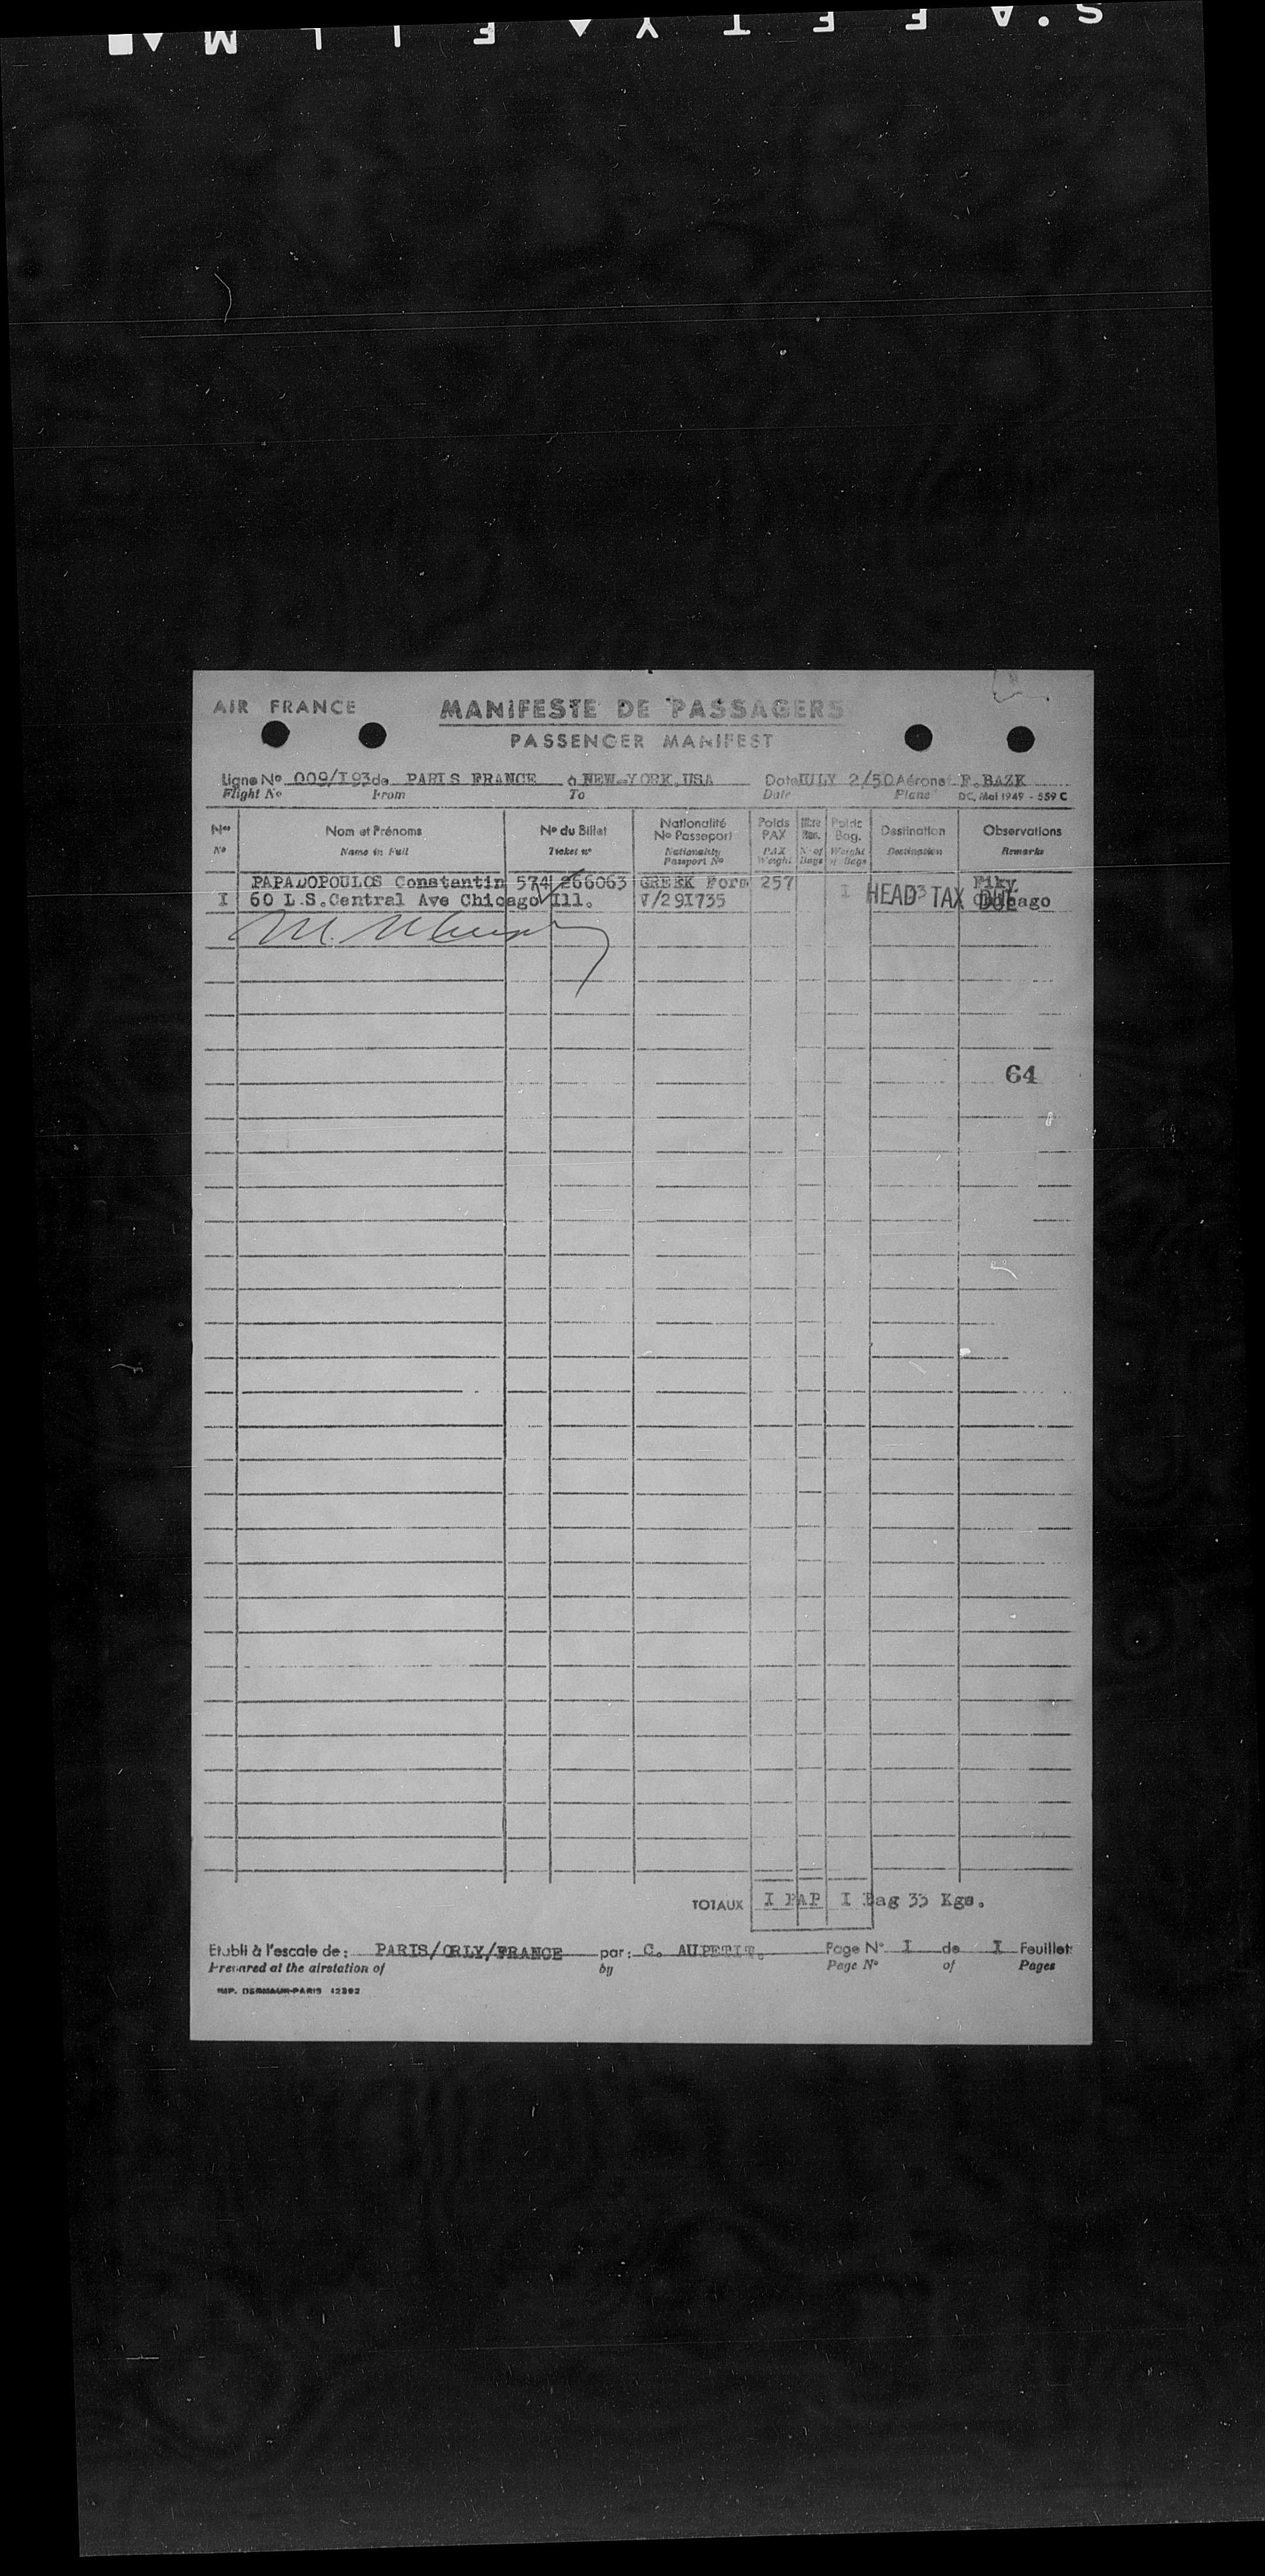 S.A.FETY FILM
AIR FRANCE
MANIFESTE DE PASSAGERS
PASSENGER MANIFEST
Ligne No 009/I93 de PARIS FRANCE à NEW-YORK.USA Date JULY 2/50 Aéronef F.BAZK
Flight No From To Date Plane DC. Mai 1949 - 559 C
Nos Nom et Prénoms No du Billet Nationalité No Passeport Poids PAX Nbre Bag. Poids Bag. Destination Observations
No Name in Full Ticket no Nationality Passport No PAX Weight No of Bags Weight of Bags Destination Remarks
PAPADOPOULOS Constantin 574 266063 GREEK Form 257
I 60 L.S.Central Ave Chicago Ill. V/291735 I HEAD TAX DUE Chicago
64
TOTAUX I PAP I Bag 33 Kgs.
Etabli à l'escale de: PARIS/ORLY/FRANCE par: C. AUPETIT. Page No I de I Feuillets
Prepared at the airstation of by Page No of Pages
IMP. DERMAUR-PARIS 12392